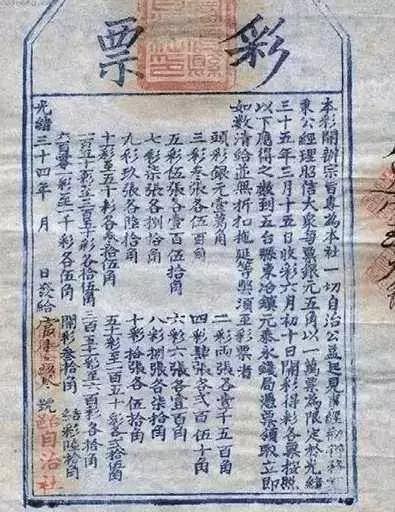 彩票
本彩開辦宗旨專為本社一切自治公益起見
東公經理昭信大眾每票銀元五角以一萬票為限定於光緒
三十五年三月十五日收彩六月初十日開彩得彩各票按照
以下應得之數到五台縣東冶鎮元泰永錢局憑票領取立即
如數清給並無折扣拖延等弊須至彩票者
頭彩銀元壹萬角 二彩兩張各壹千五百角
三彩叁張各伍百角 四彩肆張各弍百伍十角
五彩伍張各壹百伍拾角 六彩六張各壹百角
七彩柒張各捌拾角 八彩捌張各柒拾角
九彩玖張各陸拾角 十彩拾張各伍拾角
十彩至五十彩各叁拾伍角 五十彩至一百五十彩各弍拾伍角
一百五十彩至三百五十彩各拾伍角 三百五十彩至六百彩各拾角
六百零一彩至一千彩各五角 開彩叁拾角 結彩陸拾角
光緒三十四年 月 日發給 號 自治社